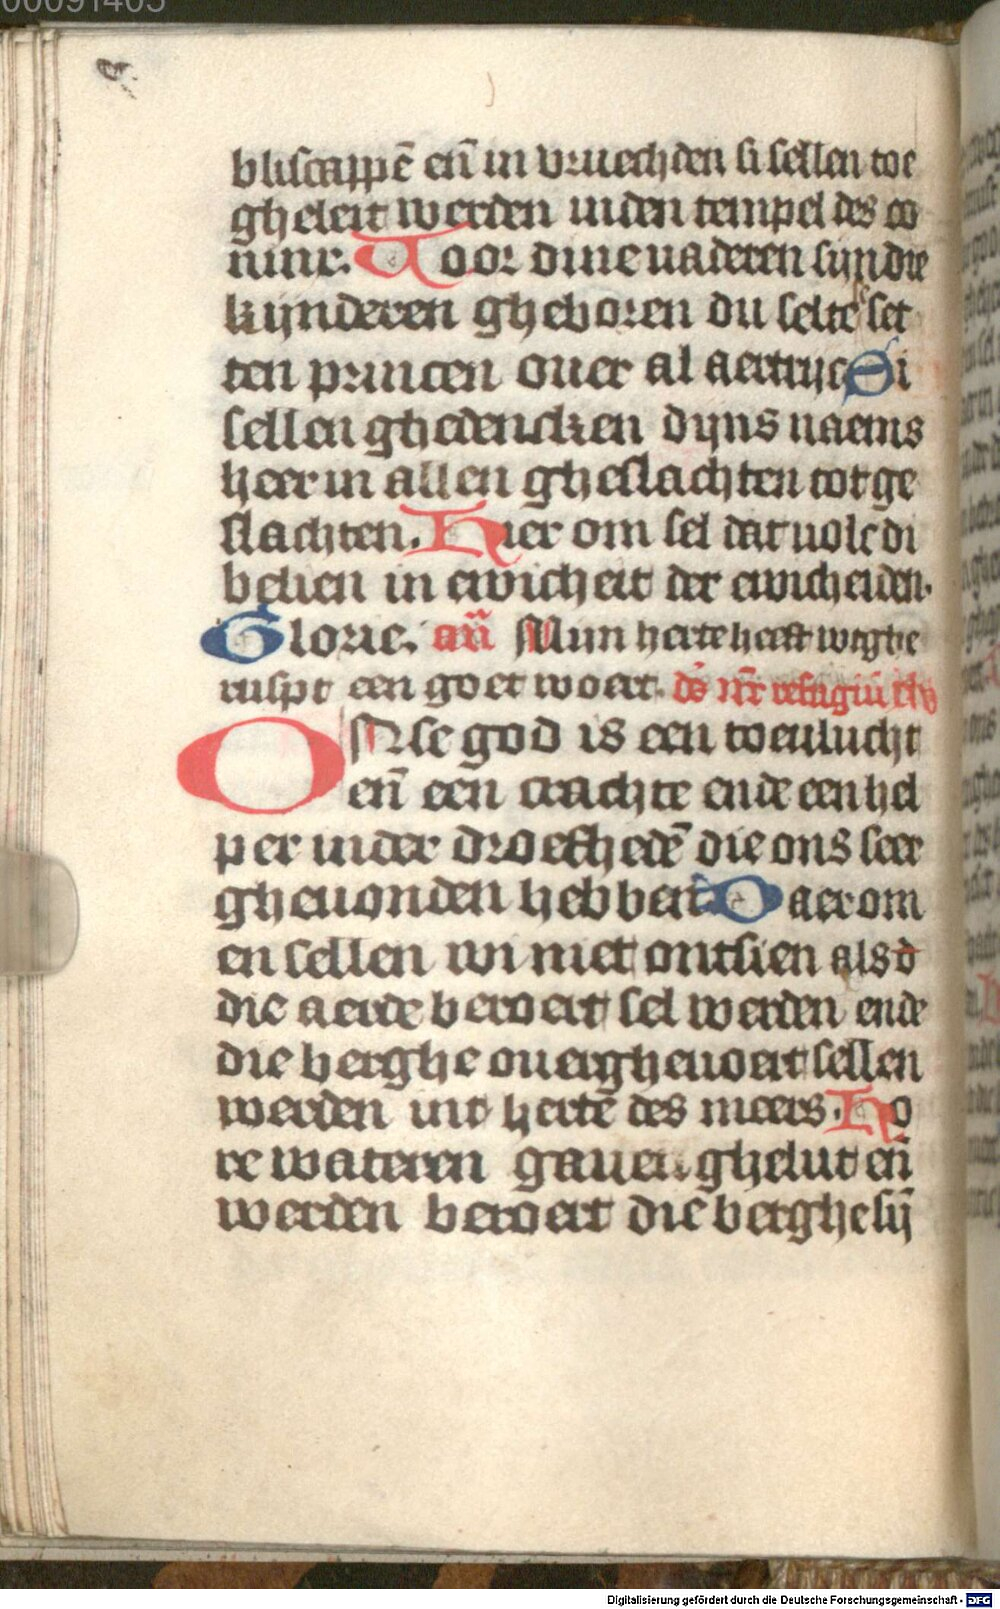 00091405
bliscappē eñ in vruechden si sellen toe
gheleit werden inden tempel des co
ninx. Voor dine vaderen sijn die
kijnderen gheboren du selte se set
ten princen ouer al aertrijc Si
sellen ghedencken dijns naems
heer in allen gheslachten tot ge
slachten. Hier om sel dat volc di
belien in ewicheit der ewicheiden.
Glorie. añ Mijn herte heeft wtghe
ruspt een goet woert. dē nr̄ refugiū
Onse god is een toevlucht
eñ een crachte ende een hel
per inder droefhedē die ons seer
gheuonden hebben Daer om
en sellen wi niet ontsien als
die aerde beroert sel werden ende
die berghe ouerghevoert sellen
werden int herte des meers. Ho
re wateren gauen ghelut eñ
werden beroert die berghe sij
Digitalisierung gefördert durch die Deutsche Forschungsgemeinschaft - DFG